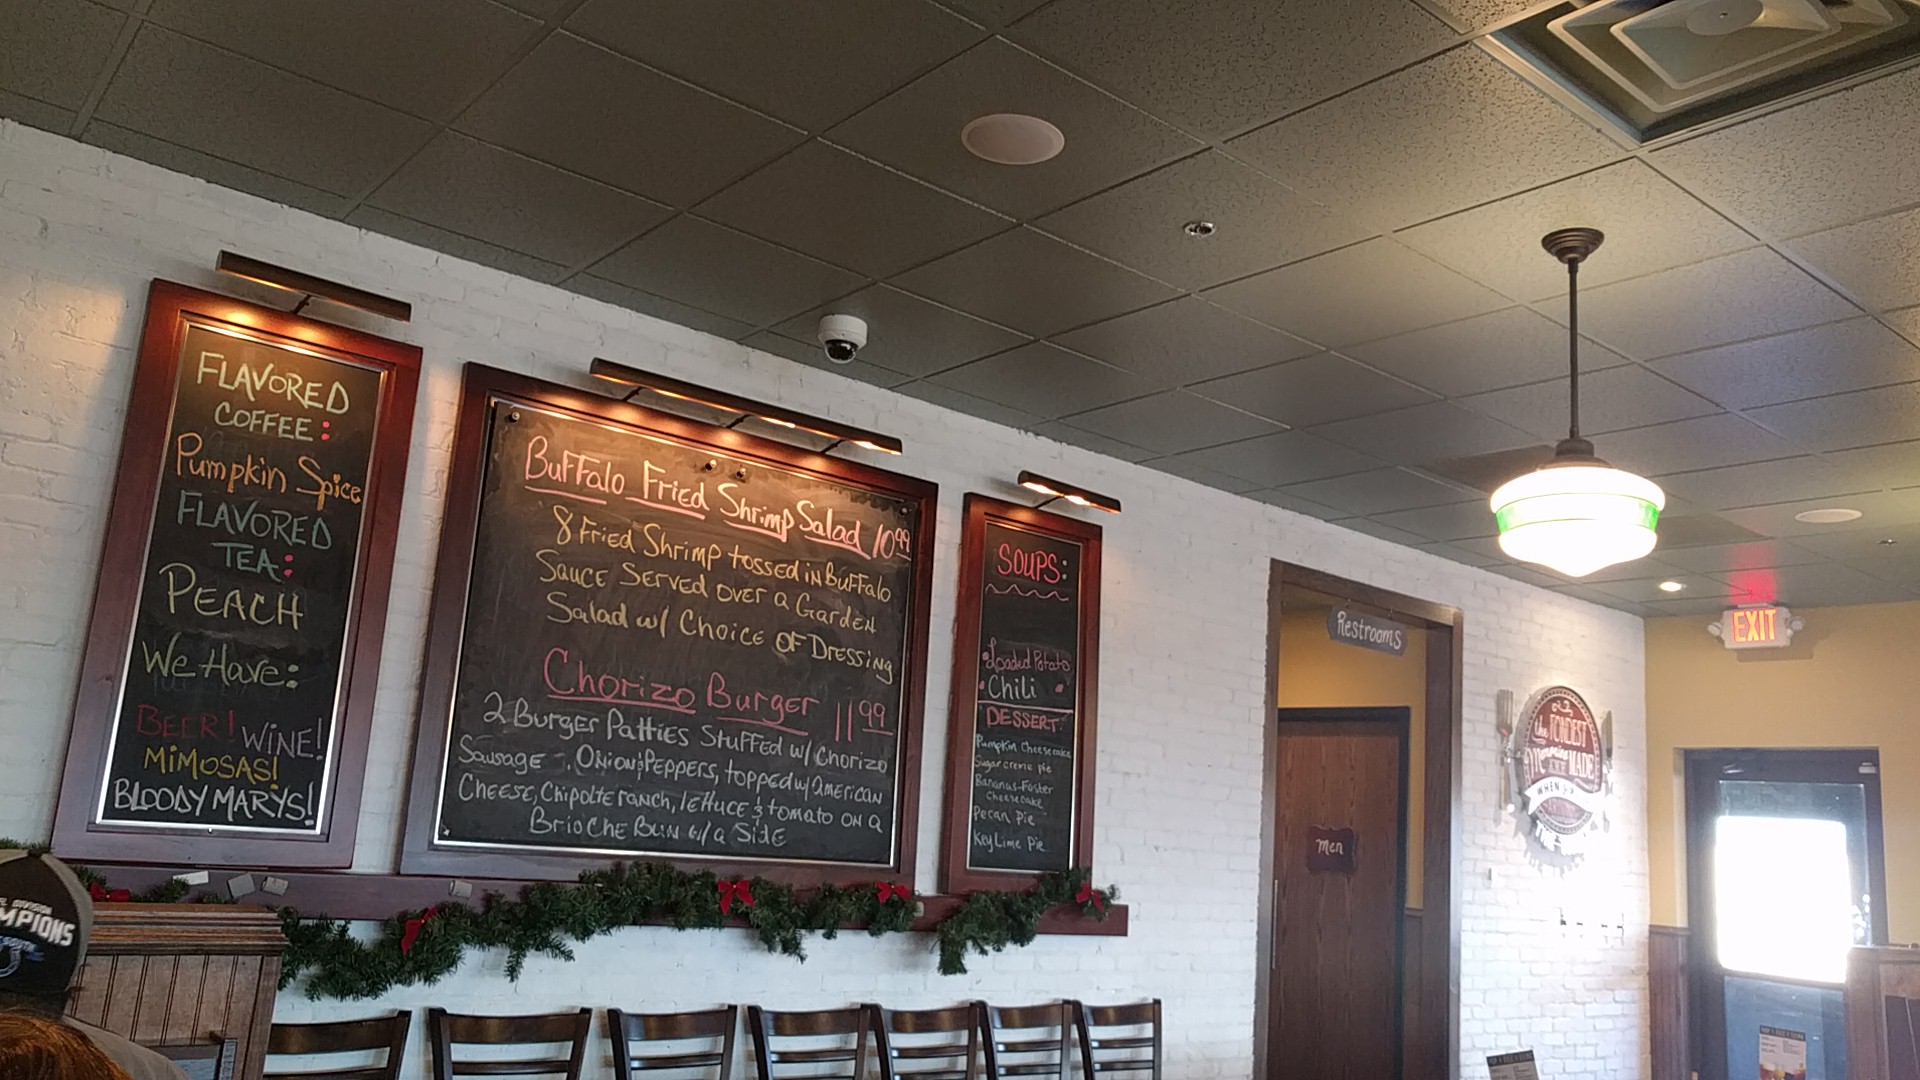 FLAVORED
COFFEE:
Pumpkin Spice
FLAVORED
TEA:
PEACH
We Have:
BEER! WINE!
MIMOSAS!
BLOODY MARYS!
Buffalo Fried Shrimp Salad 10.99
8 Fried Shrimp tossed in Buffalo
Sauce Served over a Garden
Salad w/ Choice of Dressing
Chorizo Burger 11.99
2 Burger Patties Stuffed w/ Chorizo
Sausage, Onion & Peppers, topped w/ American
Cheese, Chipolte ranch, lettuce & tomato on a
Brioche Bun w/ a Side
SOUPS:
Loaded Potato
Chili
DESSERT:
Pumpkin Cheesecake
Sugar creme pie
Bananas-Foster
Cheesecake
Pecan Pie
Key Lime Pie
Restrooms
Men
EXIT
the FONDEST
Memories
ARE MADE
WHEN
DIVISION
MPIONS